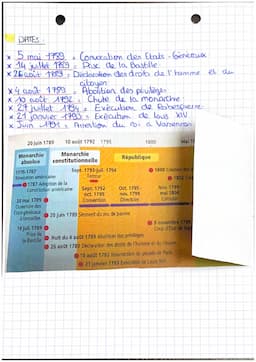 DATES:
× 5 mai 1789 = Convocation des Etats-Généraux
× 14 juillet 1789 = Prise de la Bastille
× 26 août 1789 = Déclaration des droits de l'homme et du
citoyen
× 4 août 1789 = Abolition des privilèges
× 10 août 1792 = Chute de la monarchie
× 21 janvier 1793 = Exécution de Louis XVI
× Juin 1791 = Arrestation du roi à Varennes
20 juin 1789 10 août 1792 1795 1800
Monarchie absolue
Monarchie constitutionnelle
République
Sept. 1793-juil. 1794
Terreur
1776-1787
Révolution américaine
1787 Adoption de la
Constitution américaine
Sept. 1792
oct. 1795
Convention
Oct. 1795
nov. 1799
Directoire
Nov. 1799
mai 1804
Consulat
20 juin 1789 Serment du Jeu de paume
14 juil. 1789
Prise de
la Bastille
Nuit du 4 août 1789 Abolition des privilèges
26 août 1789 Déclaration des droits de l'homme et du citoyen
10 août 1792 Insurrection du peuple de Paris
21 janvier 1793 Exécution de Louis XVI